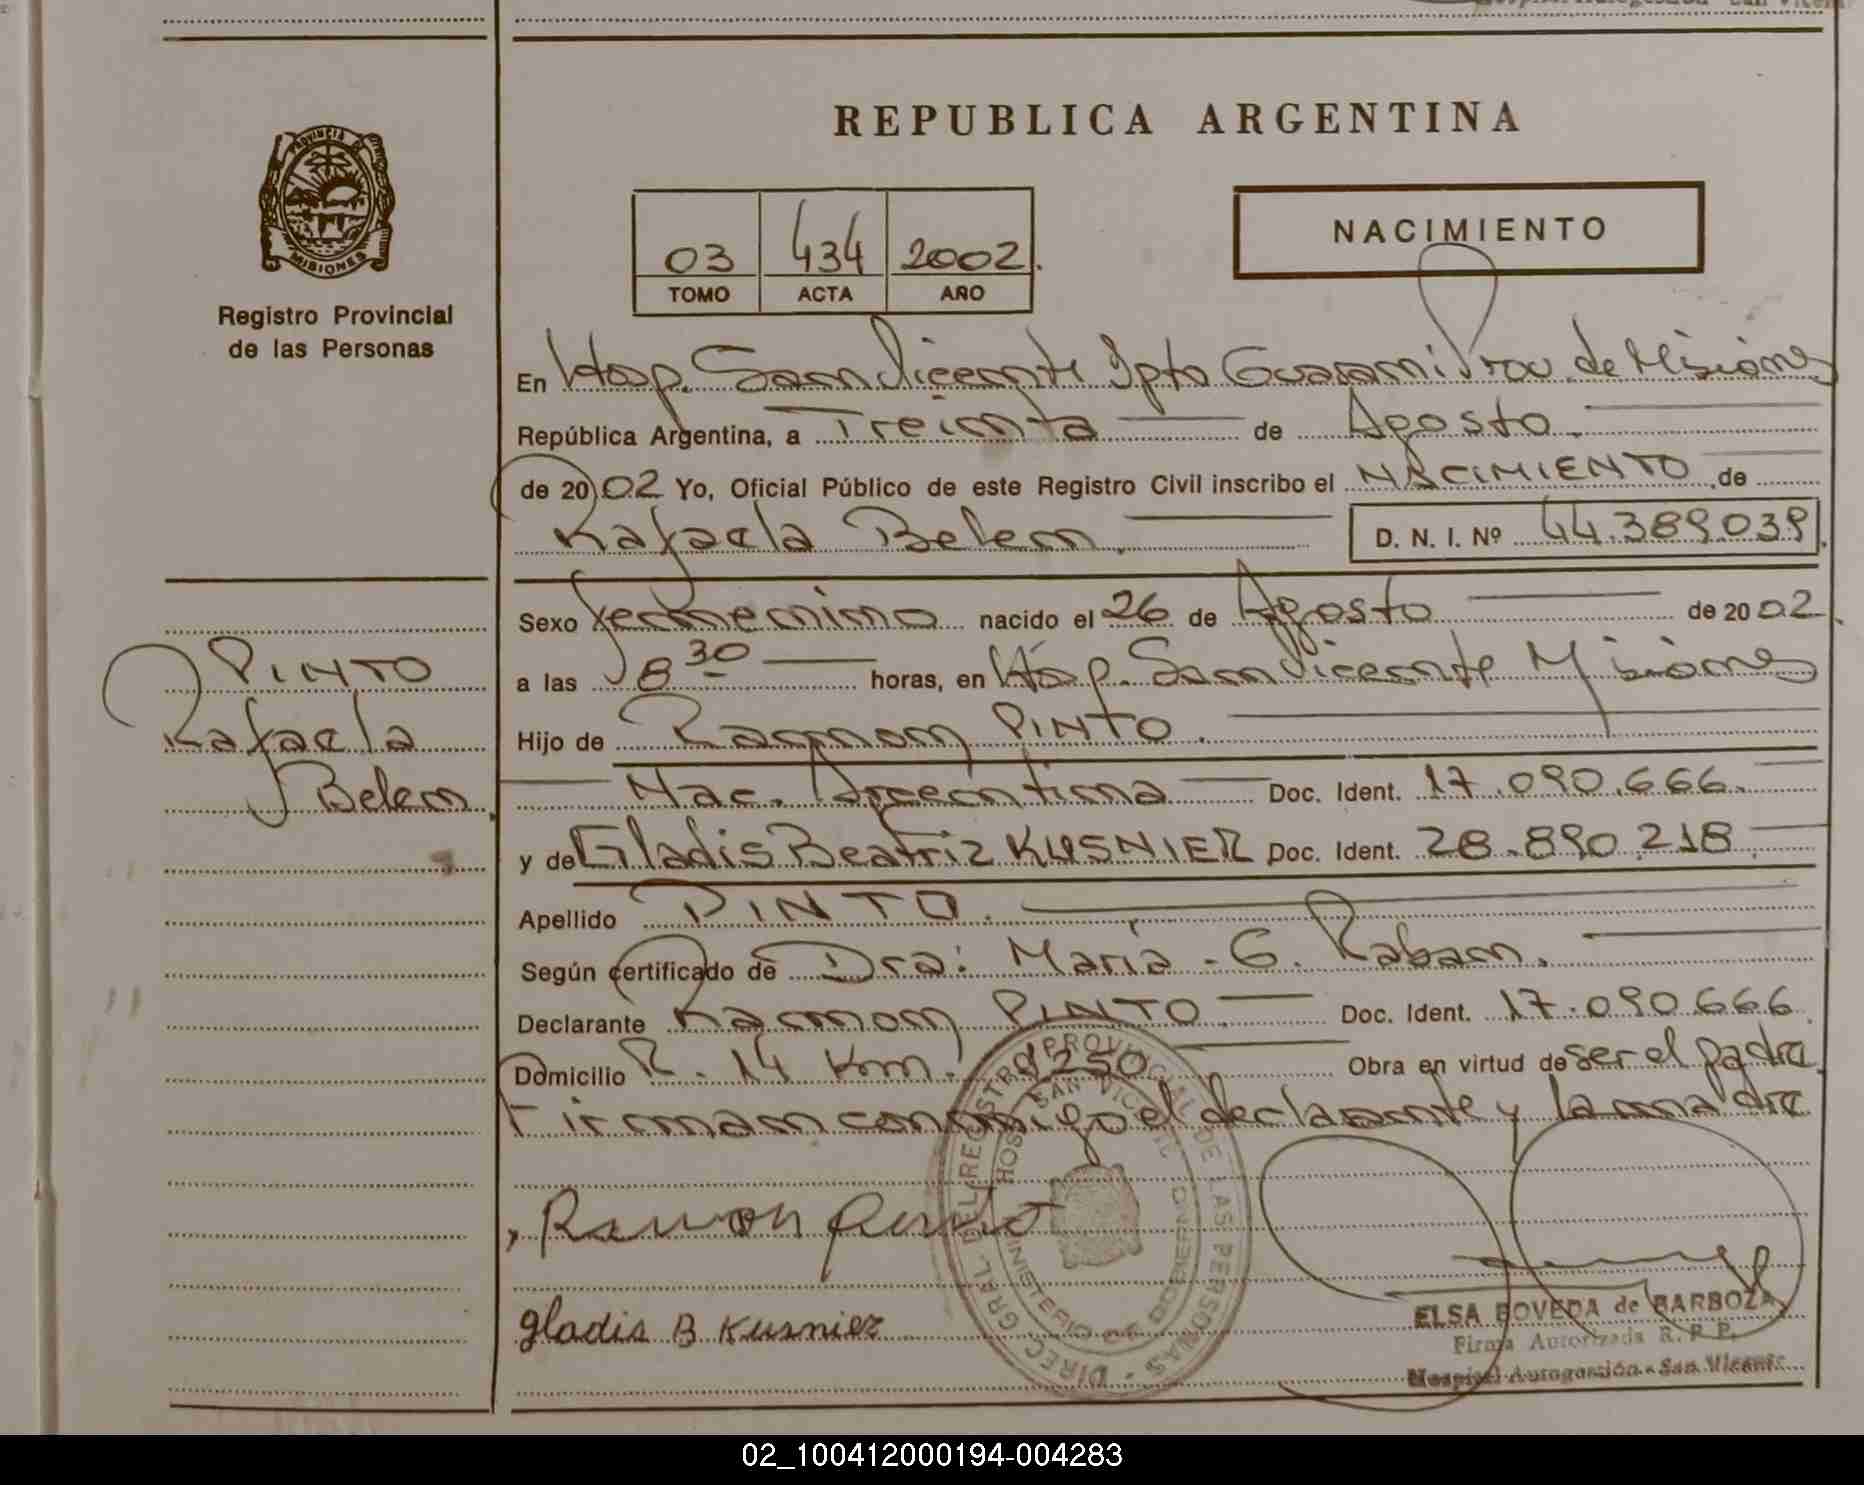 REPUBLICA ARGENTINA
PROVINCIA DE
MISIONES
Registro Provincial
de las Personas
03 434 2002.
TOMO ACTA AÑO
NACIMIENTO
En Hosp. San Vicente Dpto Guarani Prov. de Misiones
República Argentina, a Treinta de Agosto.
de 2002 Yo, Oficial Público de este Registro Civil inscribo el NACIMIENTO de
Rafaela Belen. D. N. I. Nº 44.389.039
Sexo femenino nacido el 26 de Agosto de 2002
a las 8 30 horas, en Hosp. San Vicente Misiones
Hijo de Ramon PINTO.
Nac. Argentina Doc. Ident. 17.090.666.
y de Gladis Beatriz KUSNIER Doc. Ident. 28.890.218
Apellido PINTO.
Según certificado de Dra: Maria - G. Raban.
Declarante Ramon PINTO. Doc. Ident. 17.090.666
Domicilio R. 14 Km. 1250 Obra en virtud de ser el padre
Firman conmigo el declarante y la madre
PINTO
Rafaela
Belen.
Ramon Pinto
gladis B Kusnier
DIREC. GRAL. DEL REGISTRO PROVINCIAL DE LAS PERSONAS
HOSP. SAN VICENTE
MINISTERIO DE GOBIERNO
ELSA BOVEDA de BARBOZA
Firma Autorizada R. P. P.
Hospital Autogestión - San Vicente
02_100412000194-004283